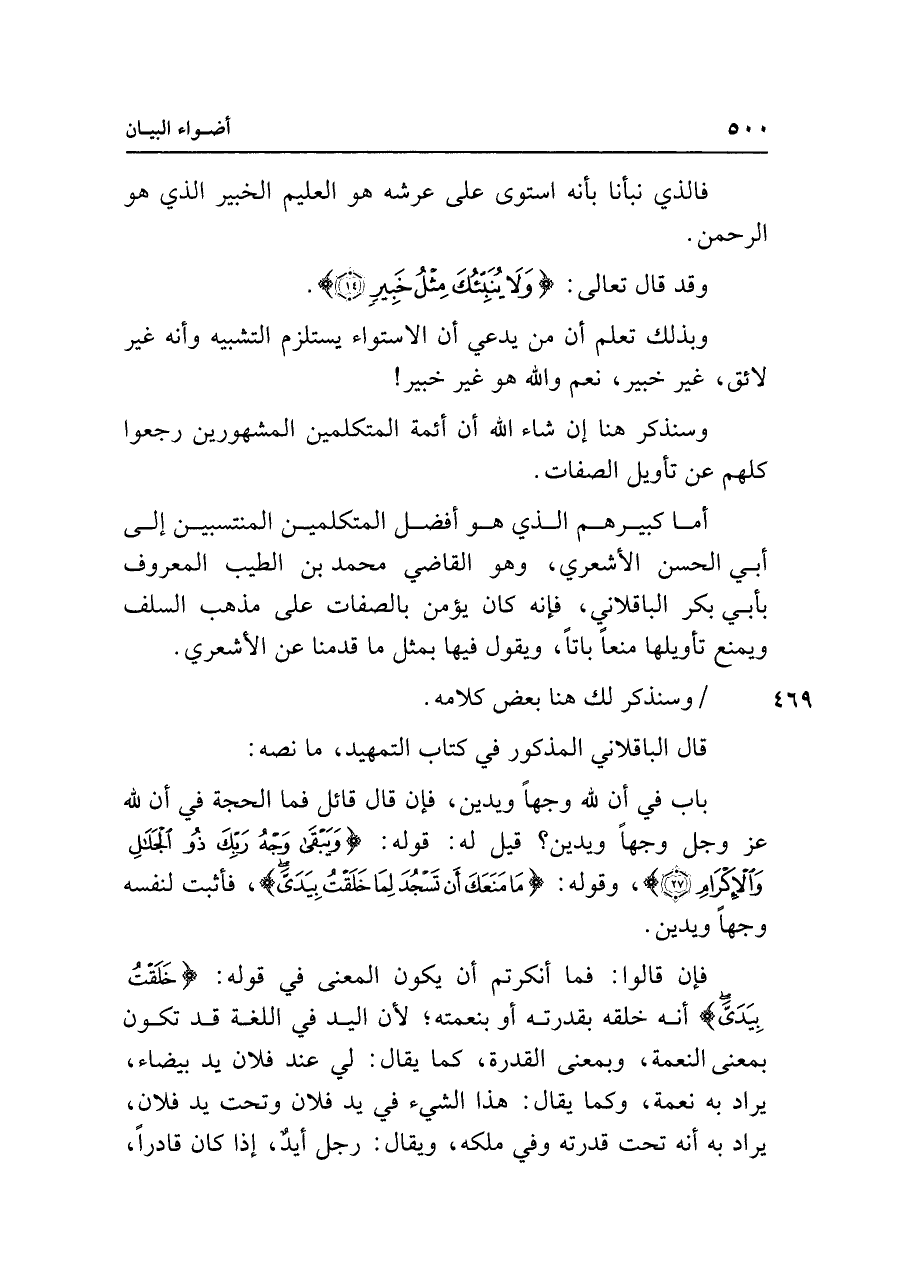 ٥٠٠ أضـواء البيـان
فالذي نبأنا بأنه استوى على عرشه هو العليم الخبير الذي هو
الرحمن.
وقد قال تعالى: ﴿وَلَا يُنَبِّئُكَ مِثْلُ خَبِيرٍ ۝١٤﴾.
وبذلك تعلم أن من يدعي أن الاستواء يستلزم التشبيه وأنه غير
لائق، غير خبير، نعم والله هو غير خبير!
وسنذكر هنا إن شاء الله أن أئمة المتكلمين المشهورين رجعوا
كلهم عن تأويل الصفات.
أمـا كبيـرهـم الـذي هـو أفضـل المتكلميـن المنتسبيـن إلـى
أبـي الحسن الأشعري، وهو القاضي محمد بن الطيب المعروف
بأبـي بكر الباقلاني، فإنه كان يؤمن بالصفات على مذهب السلف
ويمنع تأويلها منعاً باتاً، ويقول فيها بمثل ما قدمنا عن الأشعري.
٤٦٩ / وسنذكر لك هنا بعض كلامه.
قال الباقلاني المذكور في كتاب التمهيد، ما نصه:
باب في أن لله وجهاً ويدين، فإن قال قائل فما الحجة في أن لله
عز وجل وجهاً ويدين؟ قيل له: قوله: ﴿وَيَبْقَىٰ وَجْهُ رَبِّكَ ذُو ٱلْجَلَٰلِ
وَٱلْإِكْرَامِ ۝٢٧﴾، وقوله: ﴿مَا مَنَعَكَ أَن تَسْجُدَ لِمَا خَلَقْتُ بِيَدَىَّۖ﴾، فأثبت لنفسه
وجهاً ويدين.
فإن قالوا: فما أنكرتم أن يكون المعنى في قوله: ﴿خَلَقْتُ
بِيَدَىَّۖ﴾ أنـه خلقه بقدرتـه أو بنعمته؛ لأن اليـد في اللغـة قـد تكـون
بمعنى النعمة، وبمعنى القدرة، كما يقال: لي عند فلان يد بيضاء،
يراد به نعمة، وكما يقال: هذا الشيء في يد فلان وتحت يد فلان،
يراد به أنه تحت قدرته وفي ملكه، ويقال: رجل أيدٌ، إذا كان قادراً،